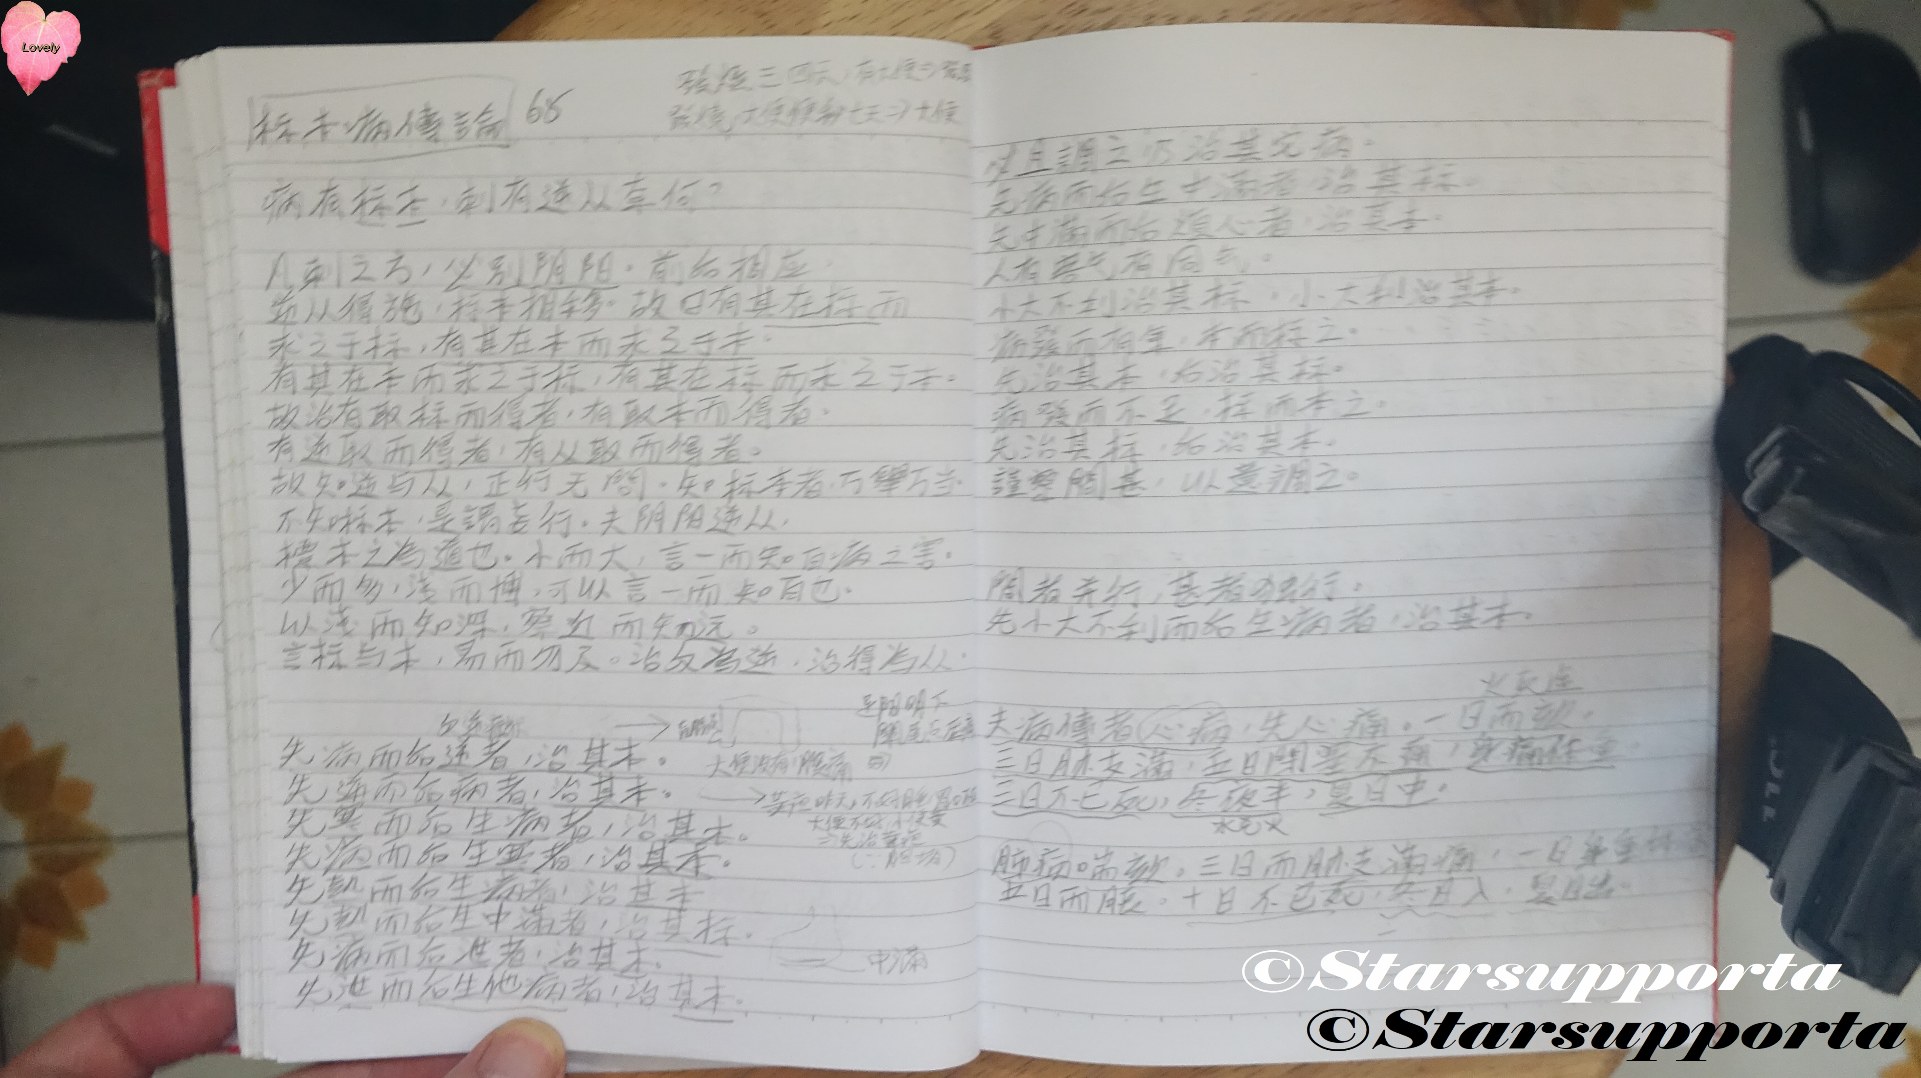 Lovely
标本病傳論 65
病有标本,刺有逆从奈何?
凡刺之方,必别阴阳.前后相应.
逆从得施,标本相移.故曰有其在标而
求之于标,有其在本而求之于本.
有其在本而求之于标,有其在标而求之于本.
故治有取标而得者,有取本而得者.
有逆取而得者,有从取而得者。
故知逆与从,正行无問.知标本者,万舉万当.
不知标本,是謂妄行.夫阴阳逆从,
標本之為道也。小而大,言一而知百病之害.
少而多,浅而博,可以言一而知百也.
以浅而知深,察近而知远。
言标与本,易而勿及。治反為逆,治得為从.
先病而后逆者,治其本。
大便没有,腹痛
先逆而后病者,治其本。
先寒而后生病者,治其本。
先病而后生寒者,治其本.
先熱而后生病者,治其本
先熱而后生中滿者,治其标.
先病而后泄者,治其本.
中滿
先泄而后生他病者,治其本.
必且調之乃治其他病.
先病而后生中滿者,治其标.
先中滿而后煩心者,治其本.
人有客气有同气。
小大不利治其标,小大利治其本.
病發而有余,本而标之.
先治其本,后治其标.
病發而不足,标而本之.
先治其标,后治其本.
謹察間甚,以意調之。
間者并行,甚者独行.
先小大不利而后生病者,治其本.
夫病傳者心病,先心痛.一日而咳.
三日肋支滿,五日閉塞不通,身痛体重.
三日不已死,冬夜半,夏日中.
肺病喘咳.三日而肋支滿痛,一日身重体
五日而脹.十日不已死,冬日入.夏日出.
©Starsupporta
©Starsupporta